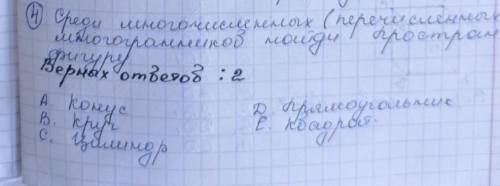 4 Среди многочисленных (перечисленных
многогранников найди простран
фигуру
Верных ответов : 2
А. Конус D. Прямоугольник
В. Круг Е. Квадрат.
С. Цилиндр